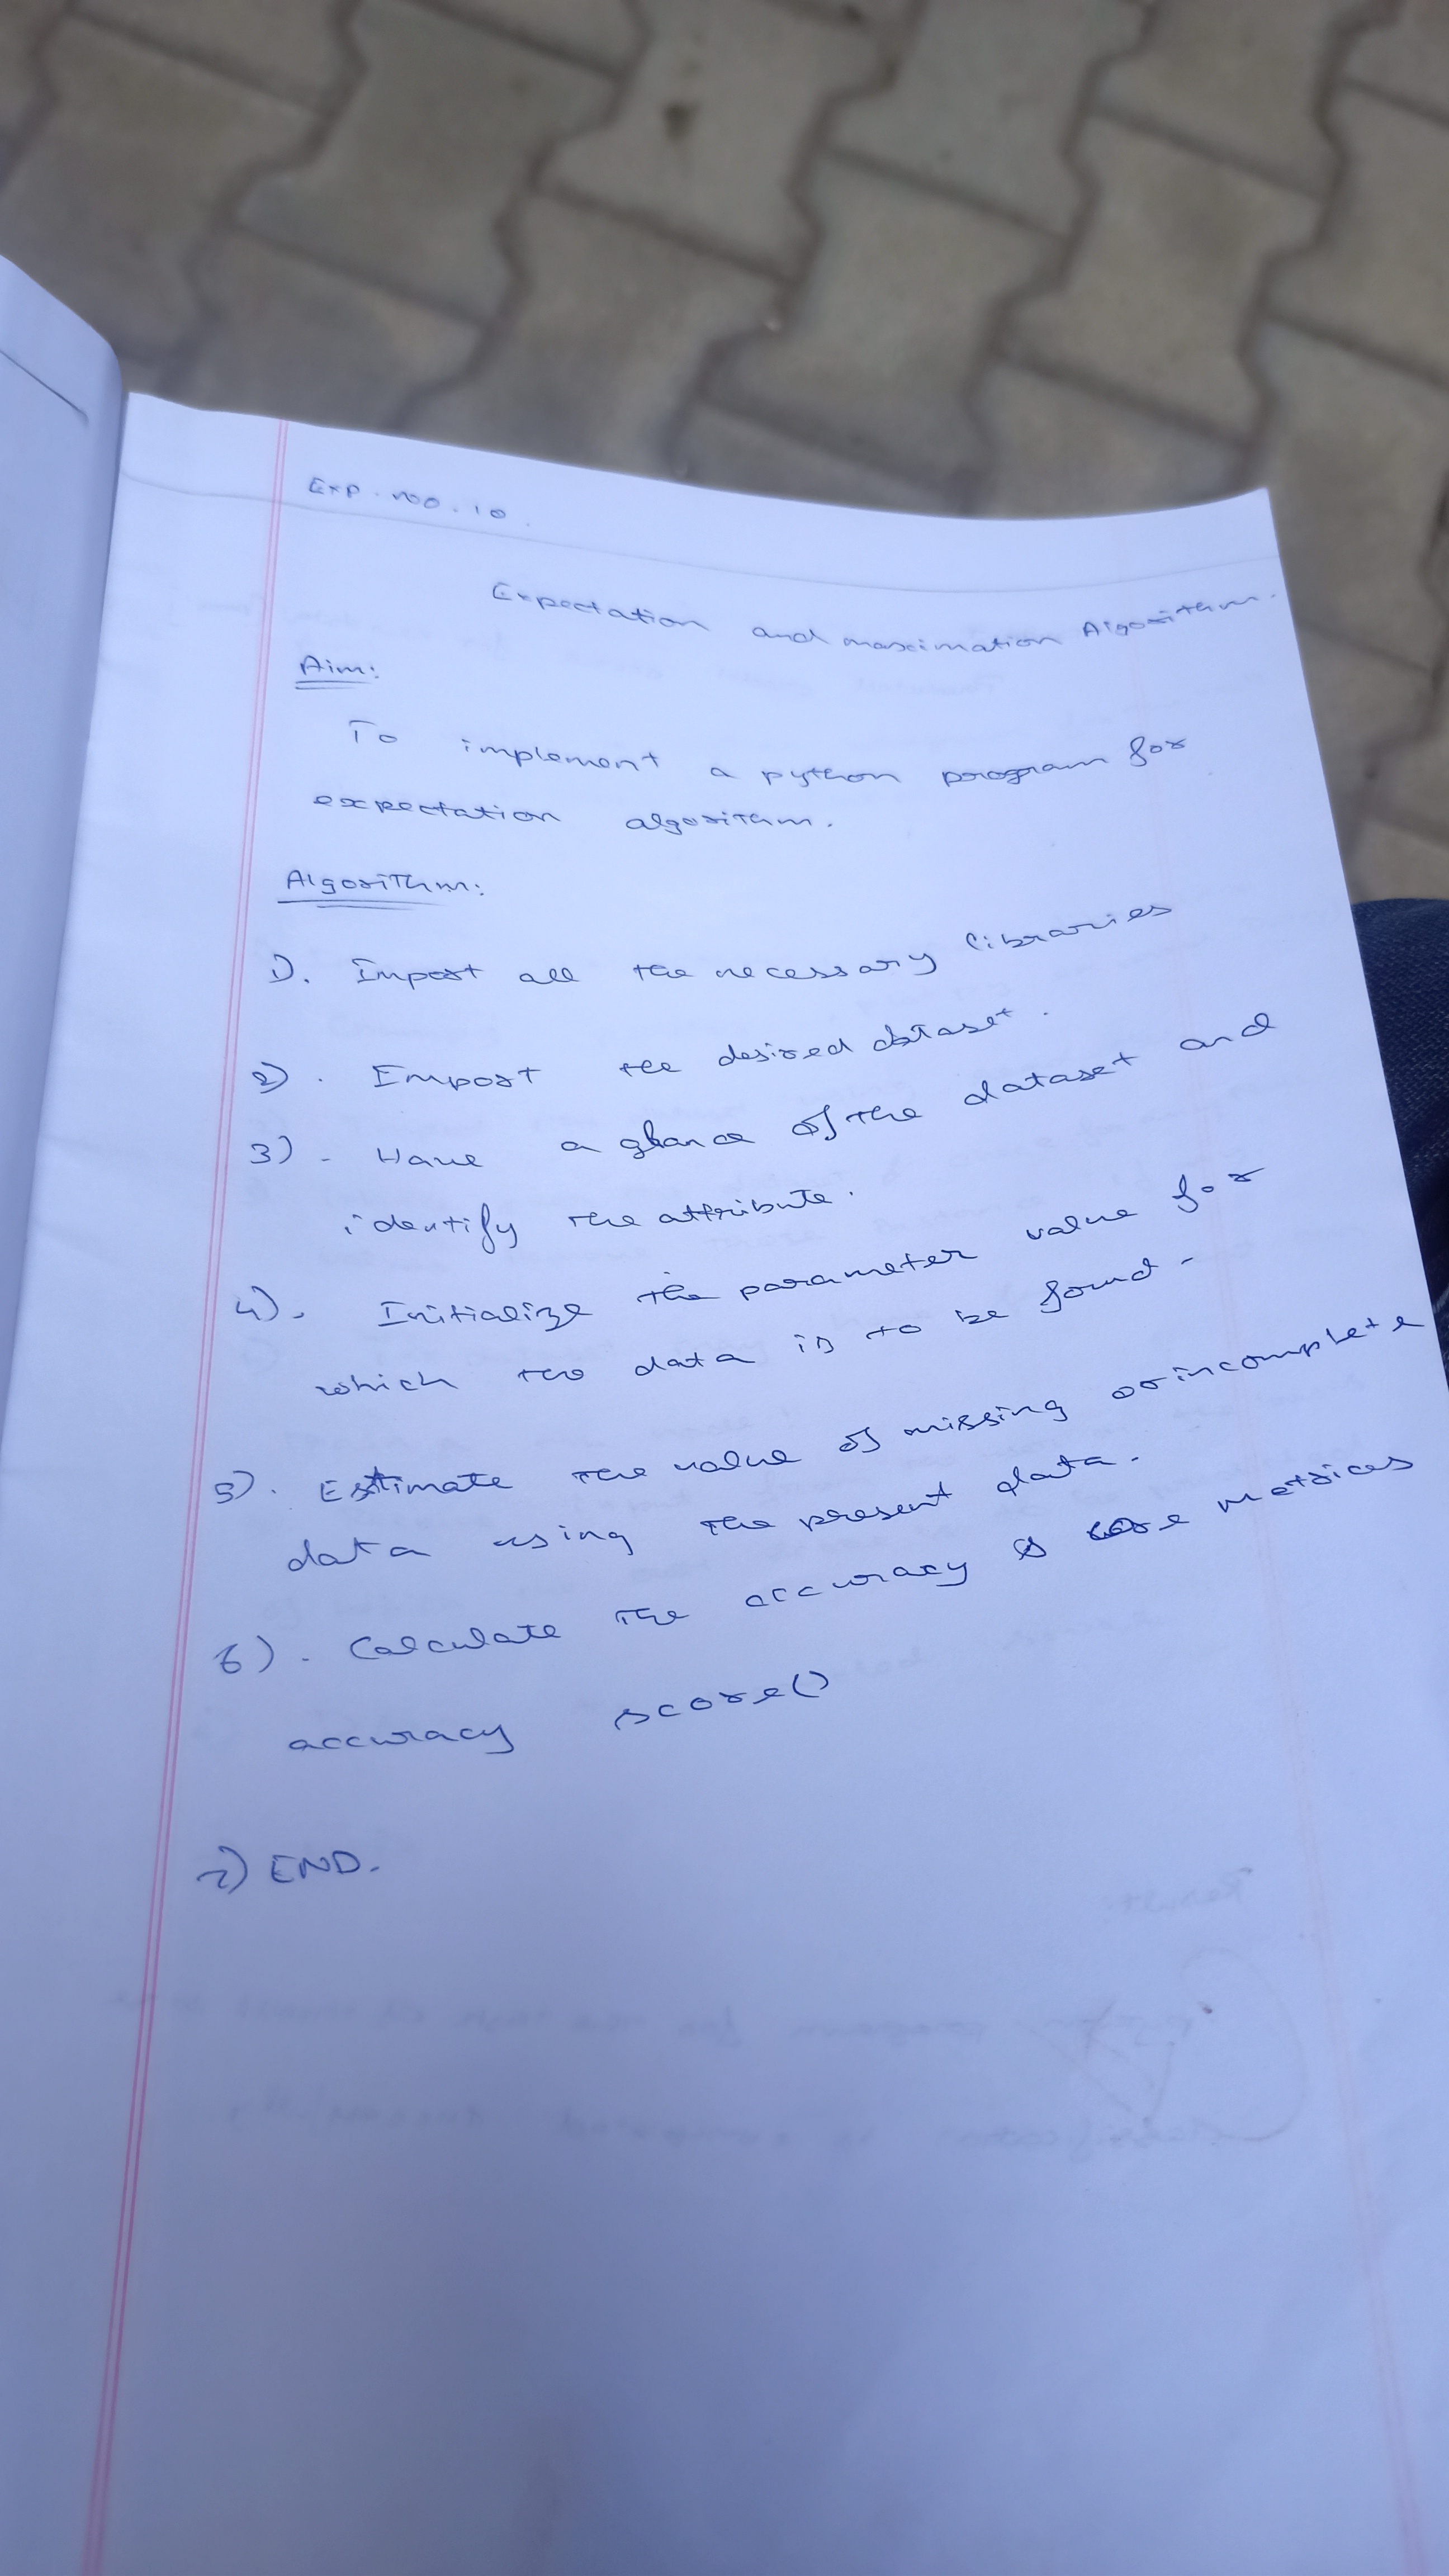 Exp. no. 10.
Expectation and maximation Algorithm.
Aim:
To implement a python program for
expectation algorithm.
Algorithm:
1). Import all the necessary libraries
2). Import the desired dataset.
3). Have a glance of the dataset and
identify the attribute.
4). Initialize the parameter value for
which the data is to be found.
5). Estimate the value of missing or incomplete
data using the present data.
6). Calculate the accuracy metrices
accuracy score()
7) END.